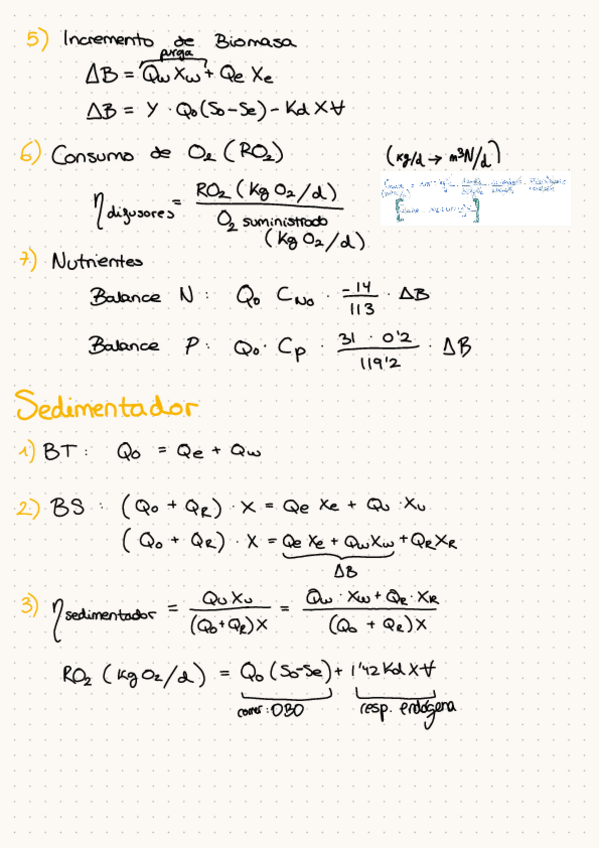 5) Incremento de Biomasa
purga
ΔB = Qw Xw + Qe Xe
ΔB = Y · Qo (So-Se) - Kd X V
6) Consumo de O2 (RO2) (kg/d → m³N/d)
η difusores = RO2 (Kg O2/d) / O2 suministrado (Kg O2/d)
7) Nutrientes
Balance N: Qo CNo · -14/113 · ΔB
Balance P: Qo · Cp · 31 · 0'2/119'2 · ΔB
Sedimentador
1) BT: Qo = Qe + Qw
2) BS: (Qo + QR) · X = Qe Xe + Qu · Xu
(Qo + QR) · X = Qe Xe + Qw Xw + QR XR
ΔB
3) η sedimentador = Qu Xu / (Qo+QR) X = Qw · Xw + QR · XR / (Qo + QR) X
RO2 (Kg O2/d) = Qo (So-Se) + 1'42 Kd X V
DBO resp. endógena